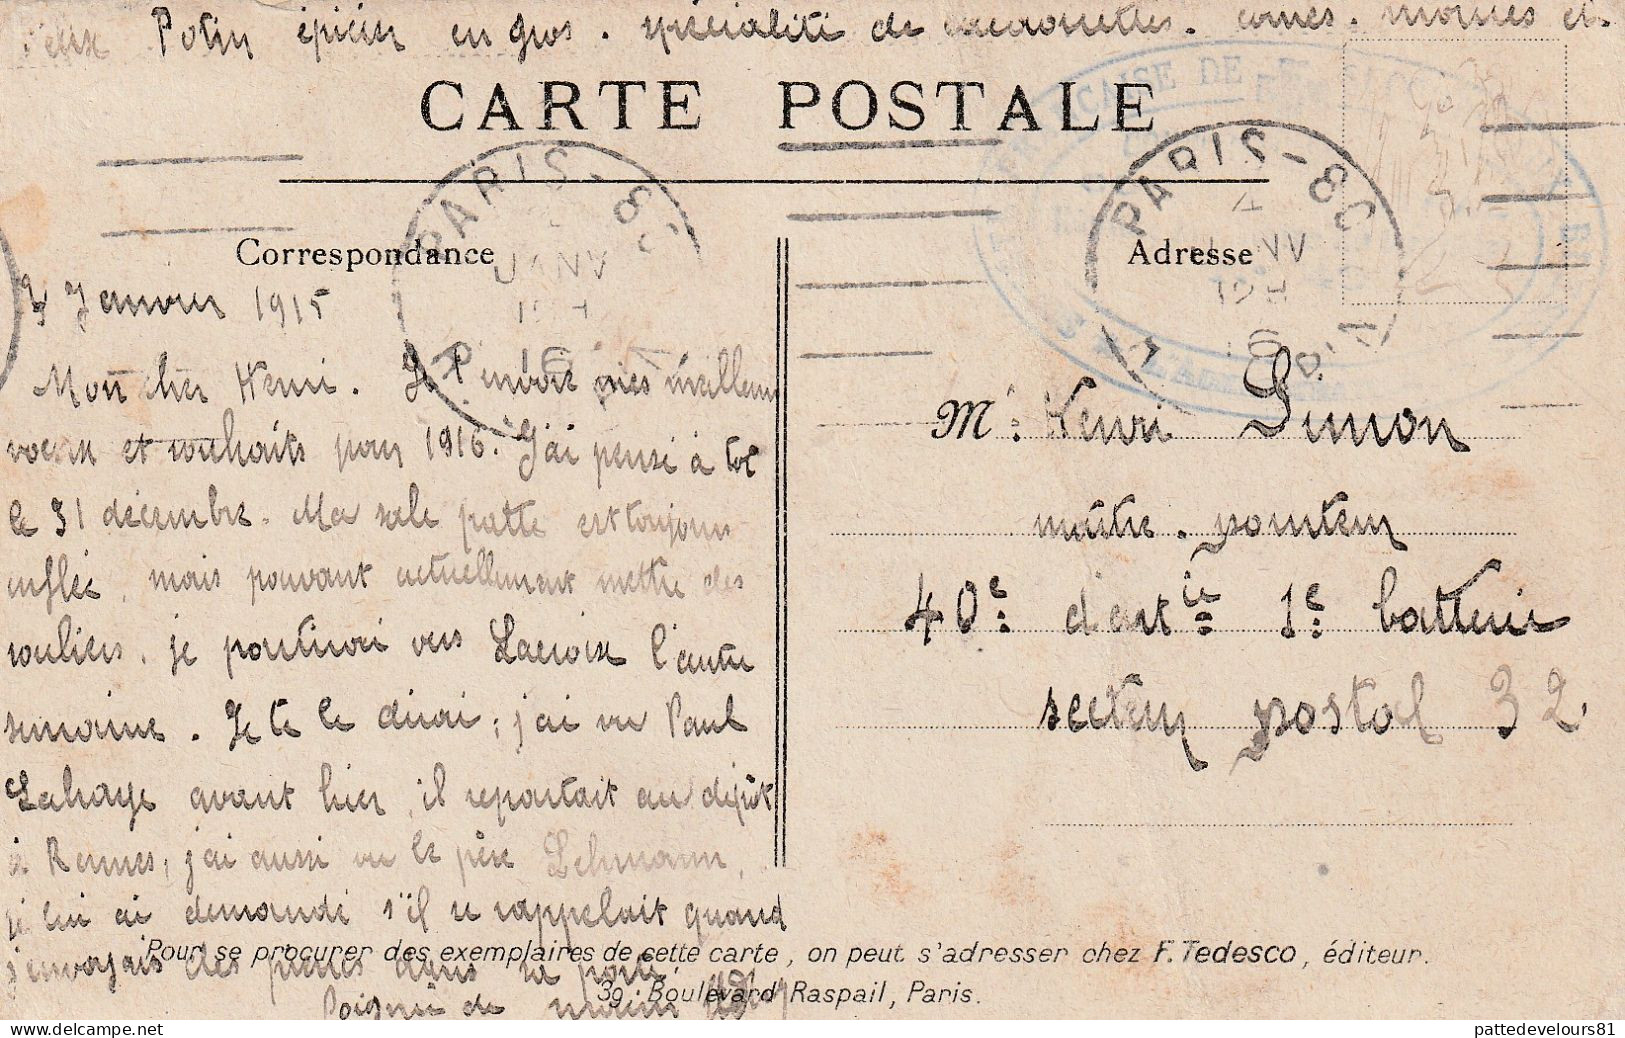 Félix Potin épicier en gros. spécialité de cacaouettes. cornes. morues et
CARTE POSTALE
Correspondance
Adresse
PARIS-
PARIS-
JANV
3 Janvier 1915
Mon cher Henri. Je t'envoie mes meilleurs
voeux et souhaits pour 1916. J'ai pensé à toi
le 31 décembre. Ma sale patte est toujours
enflée, mais pouvant actuellement mettre des
souliers, je partirai vers Lacroix l'autre
semaine. Je te le dirai; j'ai vu Paul
Lahaye avant hier, il repartait au dépôt
à Rennes, j'ai aussi vu le père Lehmann,
je lui ai demandé s'il se rappelait quand
j'envoyais des pierres dans sa porte.
Poignée de main
Mr: Henri Simon
maître. pointeur
40e: d'artie 1e: batterie
secteur postal 32
Pour se procurer des exemplaires de cette carte, on peut s'adresser chez F. Tedesco, éditeur.
39, Boulevard Raspail, Paris.
pattedevelours81
delcampe.net